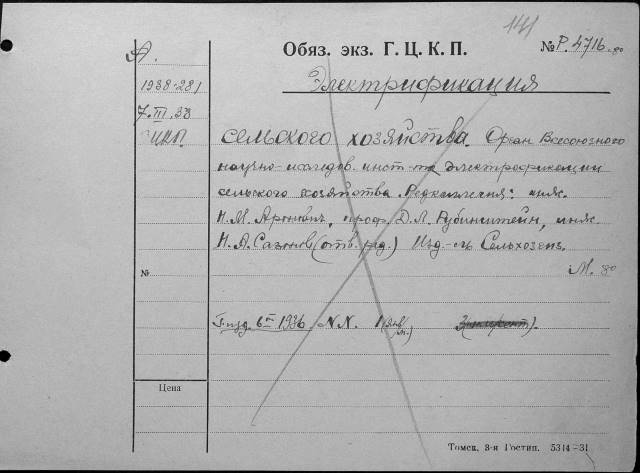 141
Обяз. экз. Г. Ц. К. П.
№ Р. 4716 до
А.
Электрификация
1938-281
7.III.33
ГЦКП.
сельского хозяйства. Орган Всесоюзного
научно-исследов. инст-та электрификации
сельского хозяйства. Редколлегия: инж.
Н. М. проф. Д. Л. Рубинштейн, инж.
Н. А. Сазонов (отв. ред.) Изд-ль Сельхозгиз.
М. 80
№
Г. изд. 6й 1936 NN. 1 (янв
м.)
Цена
Томск, 3-я Гостип. 5314—31